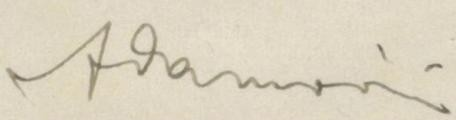 Adamović